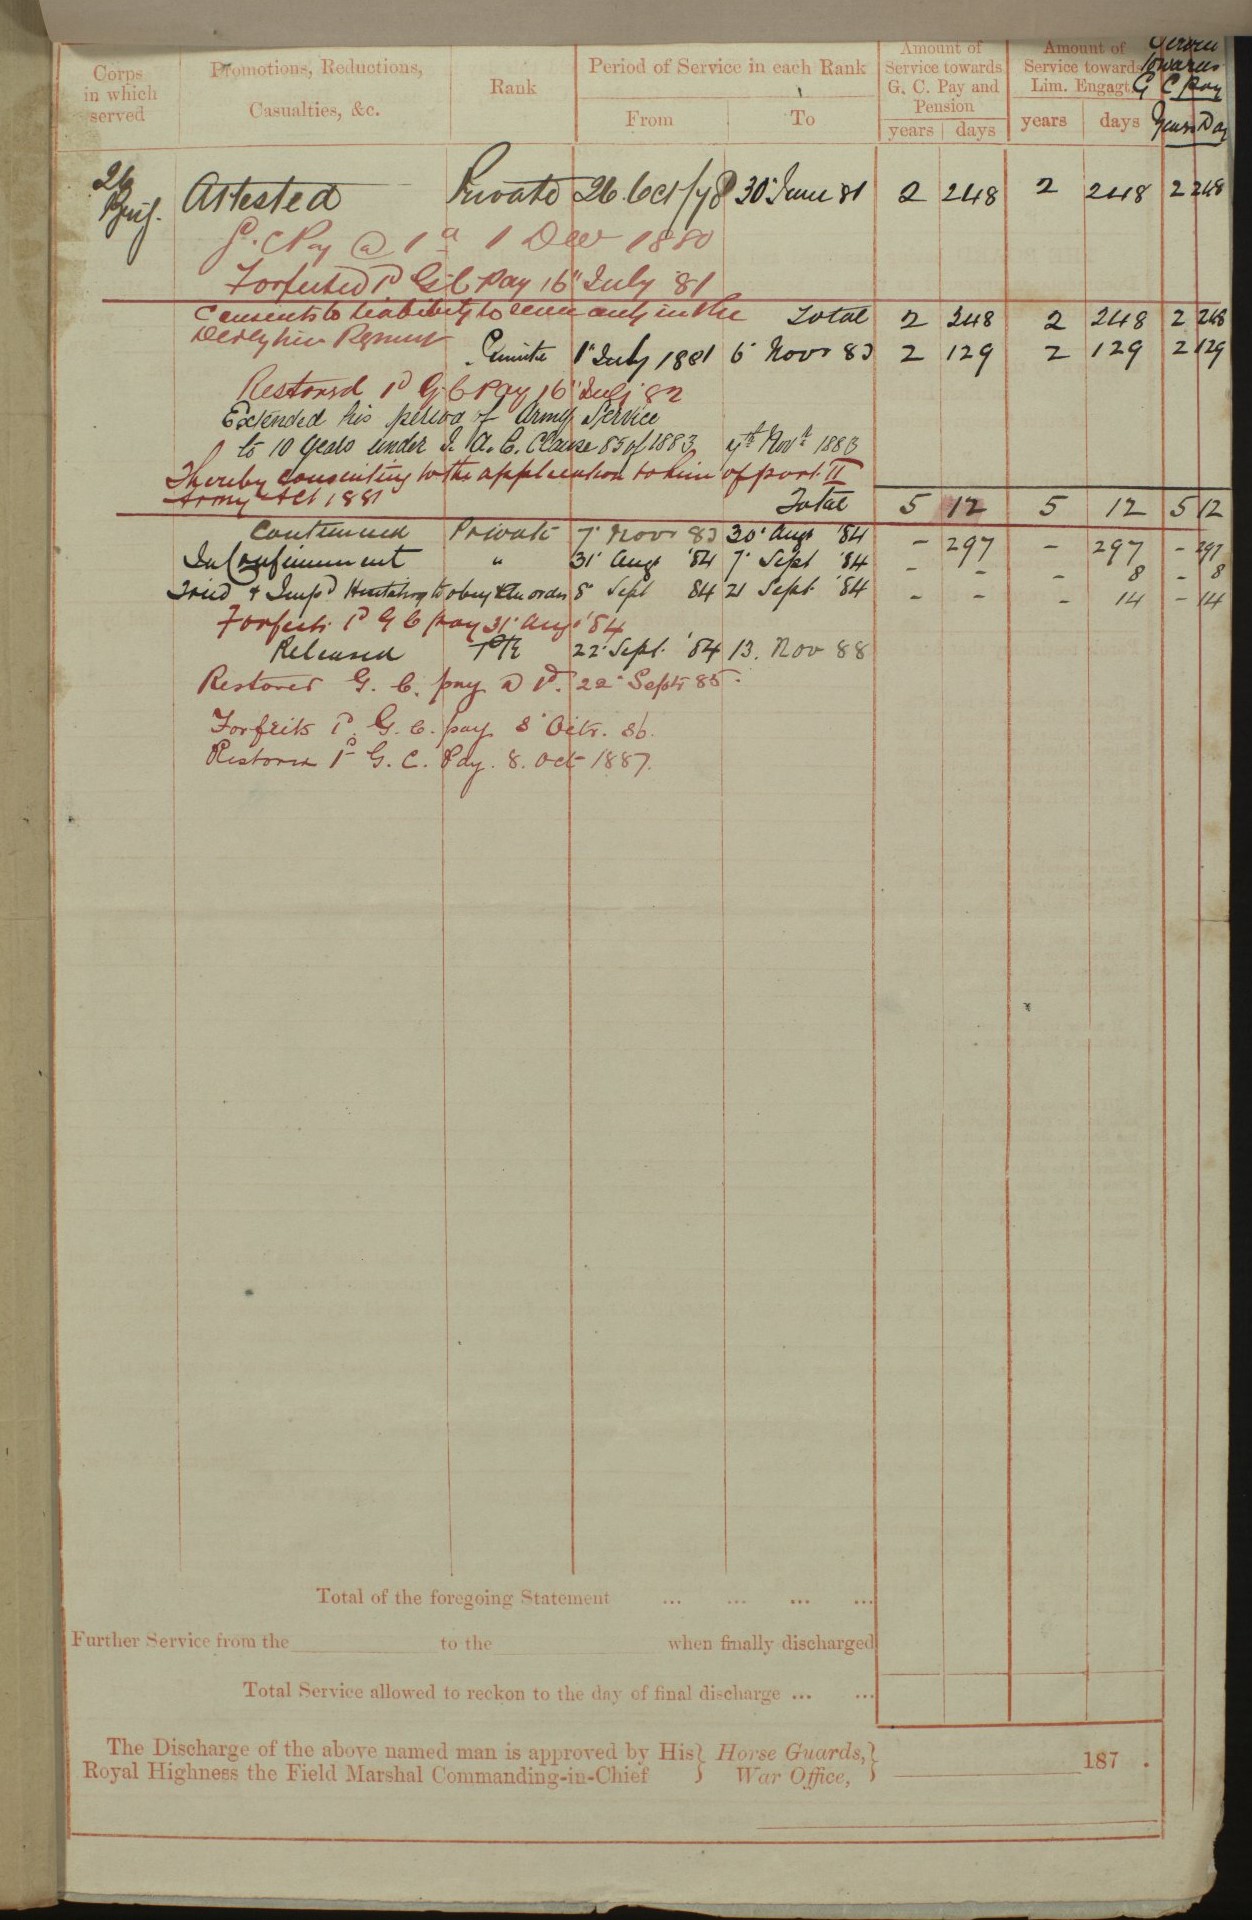 Corps in which served
Promotions, Reductions, Casualties, &c.
Rank
Period of Service in each Rank
From To
Amount of Service towards G. C. Pay and Pension
years days
Amount of Service towards Lim. Engagt.
years days
towards G C Pay
Years Day
26 Brig. Attested Private 26 Oct /78 30' June 81 2 248 2 248 2 248
G. C Pay @ 1d 1 Dec 1880
Forfeited 1d G C Pay 16" July 81
Consents to liability to serve only in the Total 2 248 2 248 2 248
Derbyshire Regment
Private 1" July 1881 6' Novr 83 2 129 2 129 2 129
Restored 1d G C Pay 16" July 82
Extended his period of Army Service
to 10 years under A. C. Clause 85 of 1883 7th Novr 1883
Thereby consenting to the application to him of part II
Army Act 1881 Total 5 12 5 12 5 12
Continued Private 7' Novr 83 30' Augt '84 - 297 - 297 - 297
In Confinement " 31' Augt '84 7' Sept '84 - - - 8 - 8
Tried & Impd Hesitating to obey an order 8' Sept 84 21 Sept '84 - - - 14 - 14
Forfeits 1d G C pay 31' Aug '84
Released Pte 22' Sept. '84 13. Nov 88
Restored G. C. pay @ 1d. 22' Septr 85.
Forfeits 1d. G. C. pay 8' Octr. 86.
Restored 1d G. C. Pay. 8. Oct 1887.
Total of the foregoing Statement ... ... ... ...
Further Service from the to the when finally discharged
Total Service allowed to reckon to the day of final discharge ... ...
The Discharge of the above named man is approved by His } Horse Guards, }
Royal Highness the Field Marshal Commanding-in-Chief } War Office, } 187 .